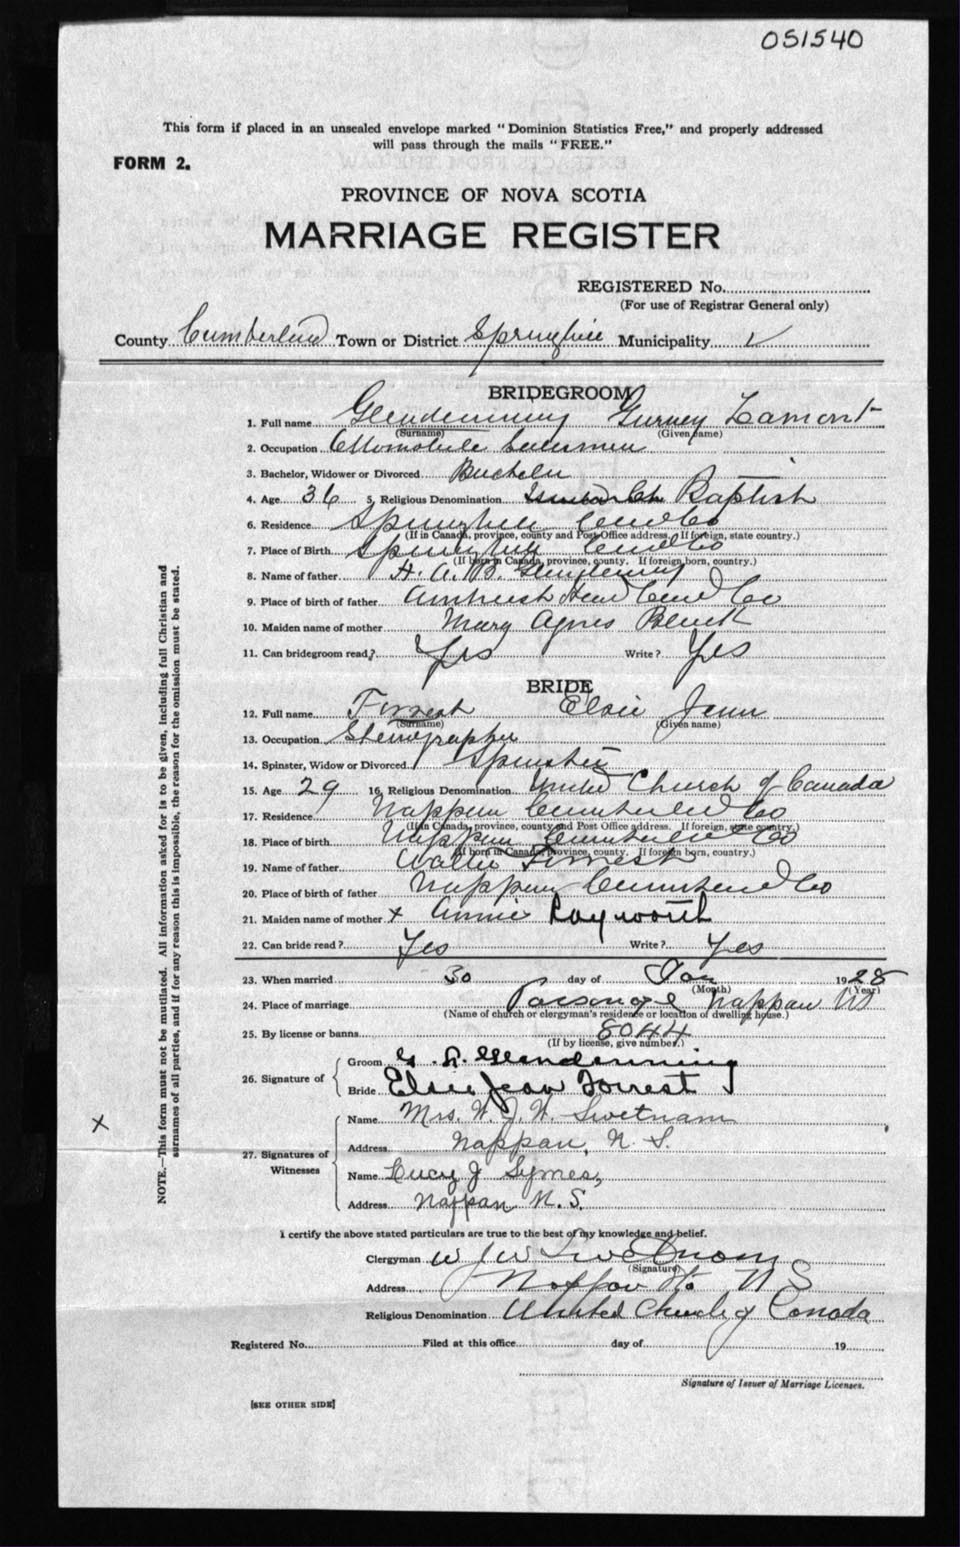 051540
This form if placed in an unsealed envelope marked "Dominion Statistics Free," and properly addressed
will pass through the mails "FREE."
FORM 2.
PROVINCE OF NOVA SCOTIA
MARRIAGE REGISTER
REGISTERED No.
(For use of Registrar General only)
County Cumberland Town or District Springhill Municipality
BRIDEGROOM
1. Full name Glendenning Gurney Lamont
(Surname) (Given name)
2. Occupation
3. Bachelor, Widower or Divorced Bachelor
4. Age 36 5. Religious Denomination Baptist
6. Residence Springhill Cumb Co
(If in Canada, province, county and Post Office address. If foreign, state country.)
7. Place of Birth Springhill Cumb Co
(If born in Canada, province, county. If foreign born, country.)
8. Name of father H. A. B. Glendenning
9. Place of birth of father Amherst Head Cumb Co
10. Maiden name of mother Mary Agnes
11. Can bridegroom read? Yes Write? Yes
BRIDE
12. Full name Forrest Elsie Jean
(Surname) (Given name)
13. Occupation Stenographer
14. Spinster, Widow or Divorced Spinster
15. Age 29 16. Religious Denomination United Church of Canada
17. Residence Nappan Cumberland Co
(If in Canada, province, county and Post Office address. If foreign, state country.)
18. Place of birth Nappan Cumberland Co
(If born in Canada, province, county. If foreign born, country.)
19. Name of father Forrest
20. Place of birth of father Nappan Cumberland Co
21. Maiden name of mother x Annie Rayworth
22. Can bride read? Yes Write? Yes
23. When married 30 day of Jan 1928
(Month) (Year)
24. Place of marriage Parsonage Nappan NS
(Name of church or clergyman's residence or location of dwelling house.)
25. By license or banns 8044
(If by license, give number.)
26. Signature of
Groom G. L. Glendenning
Bride Elsie Jean Forrest
27. Signatures of Witnesses
Name Mrs. W. J. W. Swetnam
Address Nappan, N. S.
Name Lucy J Symes,
Address Nappan N. S.
I certify the above stated particulars are true to the best of my knowledge and belief.
Clergyman W J W Swetnam
(Signature)
Address Nappan Sta N S
Religious Denomination United Church of Canada
Registered No. Filed at this office day of 19
Signature of Issuer of Marriage Licenses.
[SEE OTHER SIDE]
NOTE.—This form must not be mutilated. All information asked for is to be given, including full Christian and
surnames of all parties, and if for any reason this is impossible, the reason for the omission must be stated.
x